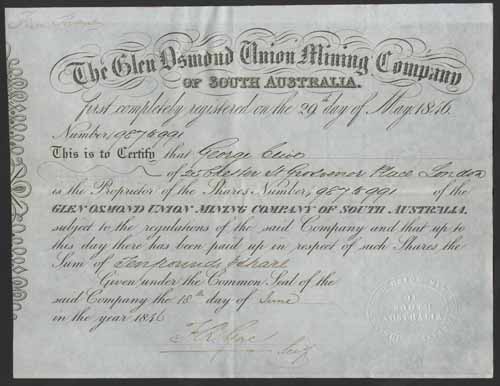 The Glen Osmond Union Mining Company
OF SOUTH AUSTRALIA.
first completely registered on the 29th day of May 1846
Number, 987 5 991
This is to Certify that George Clive
of Chester St Grosvenor Place London
is the Proprietor of the Shares Number, 987 5 991 of the
GLEN OSMOND UNION MINING COMPANY OF SOUTH AUSTRALIA.
subject to the regulations of the said Company and that up to
this day there has been paid up in respect of such Shares the
Sum of Ten pounds share
Given under the Common Seal of the
said Company the 18th day of June
in the year 1846
UNION MINING
OF
SOUTH
AUSTRALIA